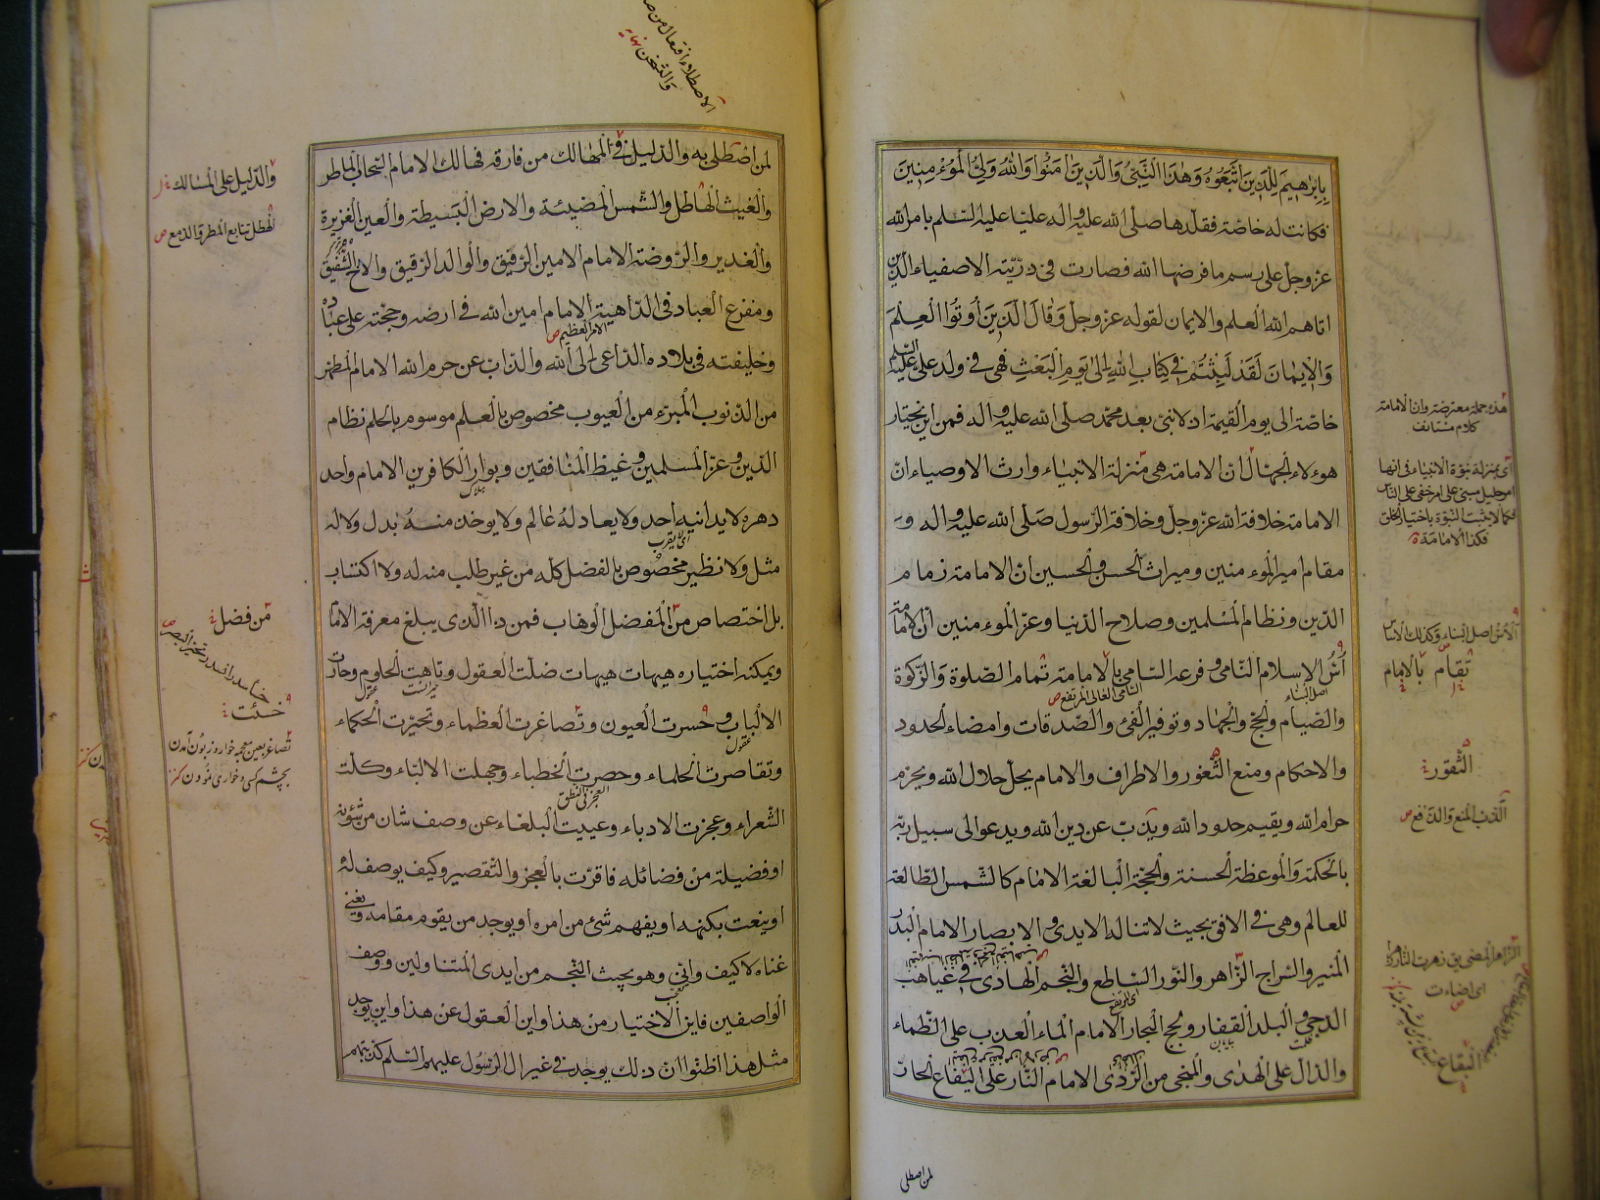 بِاِبْرٰهِيمَ لِلَّذِينَ اتَّبَعُوهُ وَهٰذَا النَّبِيُّ وَالَّذِينَ اٰمَنُوا وَاللّٰهُ وَلِيُّ الْمُؤْمِنِينَ
فكانت له خاصّة فقلّدها صلّى الله عليه واله عليّا عليه السّلم بامر الله
عزّ وجلّ على رسم ما فرضها الله فصارت فى ذرّيّته الاصفياء الّذين
اتاهم الله العلم والايمان لقوله عزّ وجلّ وَقَالَ الَّذِينَ أُوتُوا الْعِلْمَ
وَالْاِيمَانَ لَقَدْ لَبِثْتُمْ فِي كِتَابِ اللّٰهِ اِلىٰ يَوْمِ الْبَعْثِ فهى فى ولد علىّ عليه السّلم
خاصّة الى يوم القيمة اذ لا نبىّ بعد محمّد صلّى الله عليه واله فمن اين يختار
هؤلاء الجهّال ان الامامة هى منزلة الانبياء وارث الاوصياء انّ
الامامة خلافة الله عزّ وجلّ وخلافة الرّسول صلّى الله عليه واله و
مقام امير المؤمنين وميراث الحسن والحسين ان الامامة زمام
الدّين ونظام المسلمين وصلاح الدّنيا وعزّ المؤمنين انّ الامامة
اُسّ الاسلام النّامى وفرعه السّامى بالامامة تمام الصّلوة والزّكوة
والصّيام والحجّ والجهاد وتوفير الفىء والصّدقات وامضاء الحدود
والاحكام ومنع الثّغور والاطراف والامام يحلّ حلال الله ويحرّم
حرام الله ويقيم حدود الله ويذبّ عن دين الله ويدعو الى سبيل ربّه
بالحكمة والموعظة الحسنة والحجّة البالغة الامام كالشّمس الطّالعة
للعالم وهى فى الافق بحيث لا تنالها الايدى والابصار الامام البدر
المنير والسّراج الزّاهر والنّور السّاطع والنّجم الهادى فى غياهب
الدجى والبلد القفار ولجج البحار الامام الماء العذب على الظّماء
والدّالّ على الهدى والمنجى من الرّدى الامام النّار على اليفاع الحارّ
لمن اصطلى
هذه جملة معترضة وان الامامة
كلام مستانف
اى بمنزلة نبوّة الانبياء فى انها
امر جليل مبنى على امر خفى على النّاس
فكما لا يثبت النبوّة باختيار الخلق
فكذا الامامة
الاسّ اصل البناء وكذلك الاساس
تقام بالامام
اصل البناء
السّامى العالى المرتفع ص
الثّغور
الذّب المنع والدّفع ص
اى اضاءت
البقاع
لمن اصطلى به والدّليل فى المهالك من فارقه فهالك الامام السّحاب الماطر
والغيث الهاطل والشّمس المضيئة والارض البسيطة والعين الغزيرة
والغدير والرّوضة الامام الامين الرّفيق والوالد الرّقيق والاخ الشّفيق
ومفزع العباد فى الدّاهية الامام امين الله فى ارضه وحجّته على عباده
وخليفته فى بلاده الدّاعى الى الله والذابّ عن حرم الله الامام المطهّر
من الذّنوب المبرّء من العيوب مخصوص بالعلم موسوم بالحلم نظام
الدّين وعزّ المسلمين وغيظ المنافقين وبوار الكافرين الامام واحد
دهره لا يدانيه احد ولا يعادله عالم ولا يوخذ منه بدل ولا له
مثل ولا نظير مخصوص بالفضل كلّه من غير طلب منه له ولا اكتساب
بل اختصاص من المفضل الوهّاب فمن ذا الّذى يبلغ معرفة الامام
ويمكنه اختياره هيهات هيهات ضلّت العقول وتاهت الحلوم وحارت
الالباب وخسرت العيون وتصاغرت العظماء وتحيّرت الحكماء
وتقاصرت الحلماء وحصرت الخطباء وجهلت الالبّاء وكلّت
الشّعراء وعجزت الادباء وعييت البلغاء عن وصف شان من شئونه
او فضيلة من فضائله فاقرّت بالعجز والتّقصير وكيف يوصف له
او ينعت بكنهه او يفهم شىء من امره او يوجد من يقوم مقامه ويغنى
غناه لا كيف وانّى وهو بحيث النّجم من ايدى المتناولين ووصف
الواصفين فاين الاختيار من هذا واين العقول عن هذا واين يوجد
مثل هذا اظنّوا انّ ذلك يوجد فى غير ال الرّسول عليهم السّلم كذبتهم
والدّليل على المسالك
الهطل تتابع المطر والدّمع ص
الامر العظيم ص
اى لا يقرب
هلاك
من فضل
خسئت
تصاغر بعين معجمه خوار وزبون آمدن
بچشم كسى وخوارى نمودن كنز
عقول
العجز فى النطق